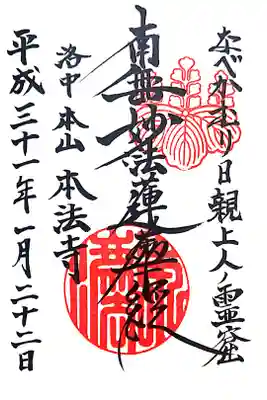 なべかむり日親上人ノ霊窟
南無妙法蓮華経
洛中 本山 本法寺
平成三十一年一月二十二日